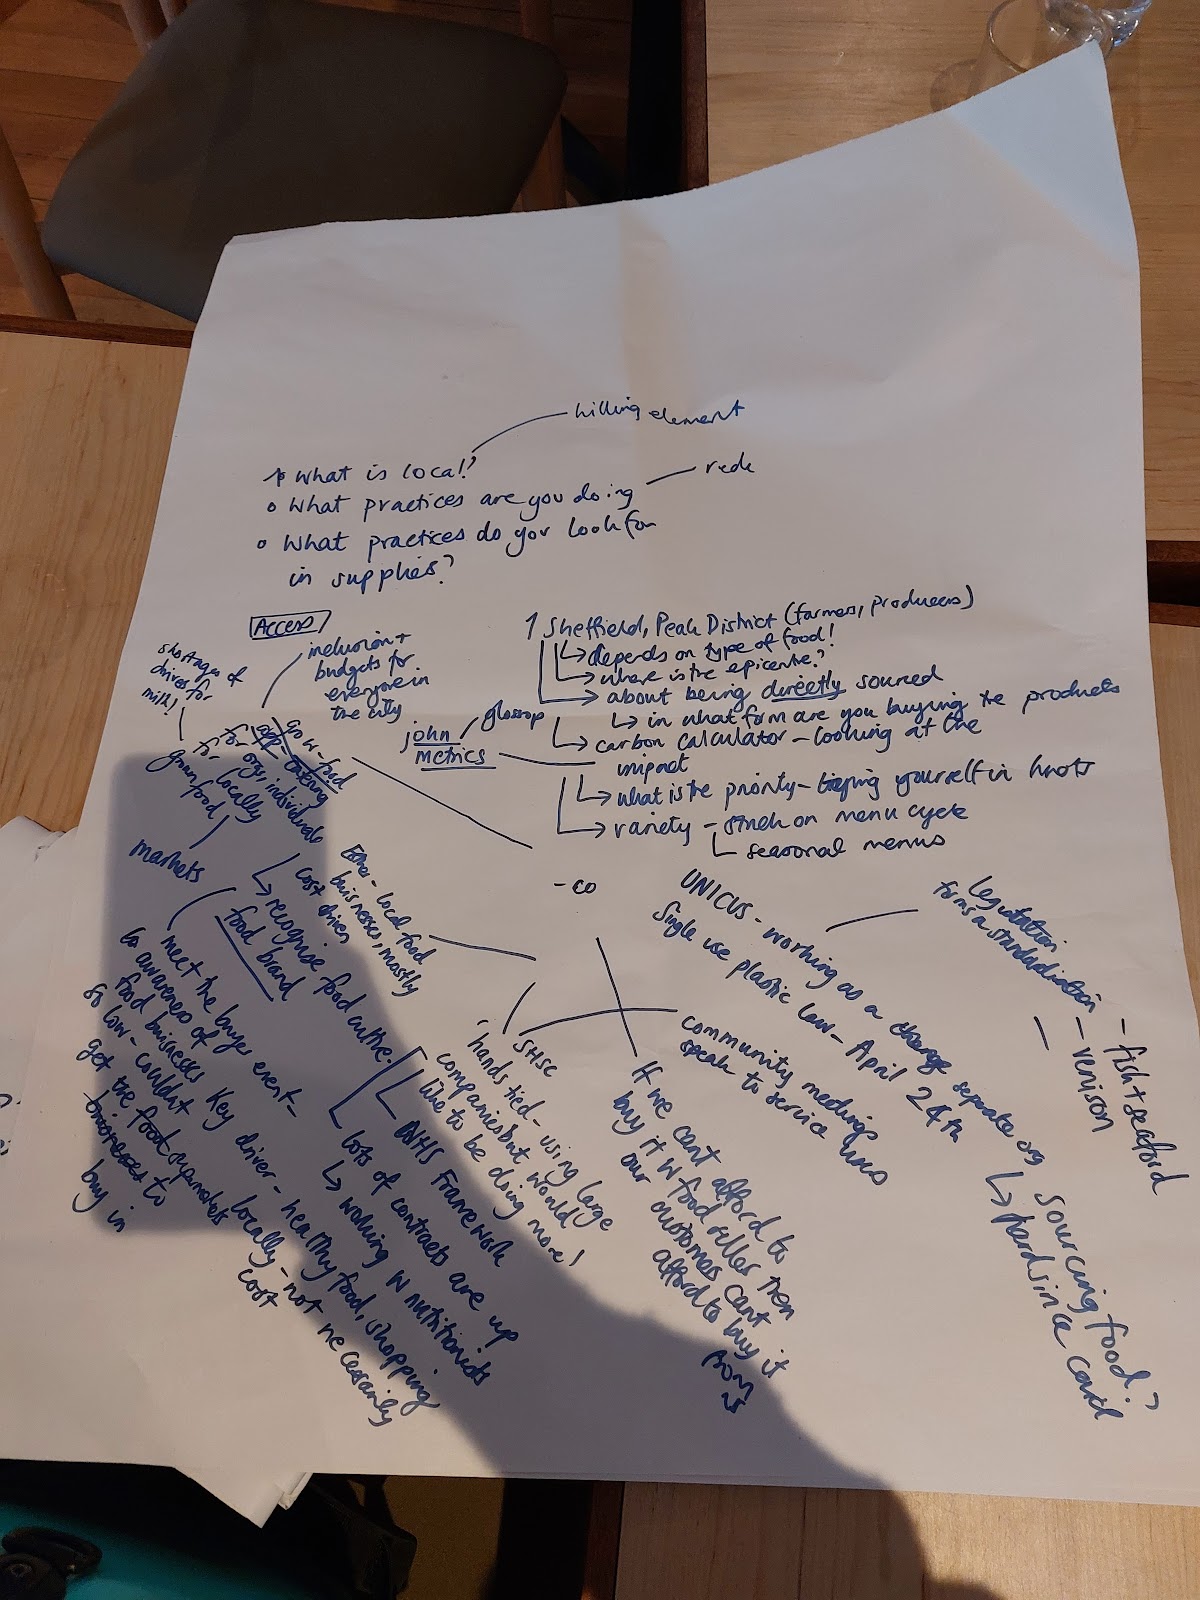 killing element
* What is local?
rede
o What practices are you doing
o What practices do you look for
in supplies?
ACCESS
inclusion +
budgets for
everyone in
the city
shortages of
drivers for
milk!
1 Sheffield, Peak District (farmers, producers)
↳ depends on type of food!
↳ where is the epicentre?
→ about being directly sourced
↳ in what form are you buying the products
↳ carbon calculator - looking at the
impact
↳ what is the priority - tieing yourself in knots
→ variety - stuck on menu cycle
seasonal menus
john
metrics
glossop
grow - food
for orgs, individuals
for locally
grown food
markets
↳ recognise food culture.
food brand
- local food
businesses, mostly
cost driven
- co
meet the buyer event -
awareness of
food businesses
so low - couldn't
get the food
businesses to
buy in
Key driver - healthy food, shopping
supermarkets locally - not necessarily
cost
NHS Framework
Lots of contracts are up
↳ working w nutritionists
SHSC
"hands tied - using large
companies but would
like to be doing more!
community meetings
speak to service
If we cant afford to
buy it w food seller then
our customers cant
afford to buy it
from us
UNICUS - working as a separate org
Single use plastic law - April 24th
Legislation
forms a standardisation
- fish + seafood
- venison
Sourcing food?
↳ hard since covid